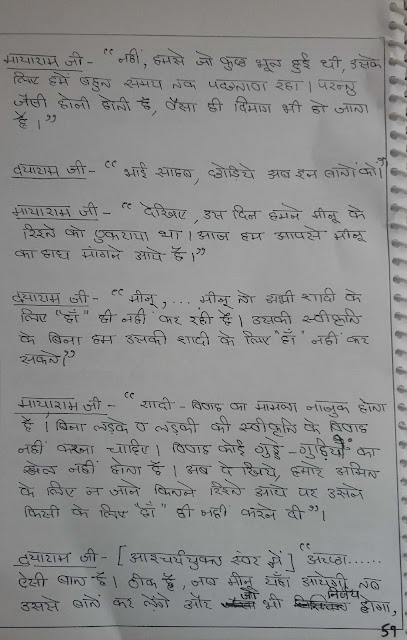 मायाराम जी - "नहीं, हमसे जो कुछ भूल हुई थी, उसके
लिए हमें बहुत समय तक पछतावा रहा। परन्तु
जैसी होनी होती है, वैसा ही दिमाग भी हो जाता
है।"
दयाराम जी - "भाई साहब, छोडिये अब इन बातों को।"
मायाराम जी - "देखिए, उस दिन हमने मीनू के
रिश्ते को ठुकराया था। आज हम आपसे मीनू
का हाथ मांगने आये हैं।"
दयाराम जी - "मीनू, ... मीनू तो अभी शादी के
लिए "हाँ" ही नहीं कर रही है। उसकी स्वीकृति
के बिना हम उसकी शादी के लिए "हाँ" नहीं कर
सकते।"
मायाराम जी - "शादी - विवाह का मामला नाजुक होता
है। बिना लडके व लडकी की स्वीकृति के विवाह
नहीं करना चाहिए। विवाह कोई गुड्डे - गुड़ियों का
खेल नहीं होता है। अब देखिये, हमारे अमित
के लिए न जाने कितने रिश्ते आये पर उसने
किसी के लिए "हाँ" ही नहीं करने दी"।
दयाराम जी - [आश्चर्ययुक्त स्वर में] "अच्छा......
ऐसी बात है। ठीक है, जब मीनू यहाँ आयेगी तब
उससे बातें कर लेंगे और जो भी निर्णय होगा,
59